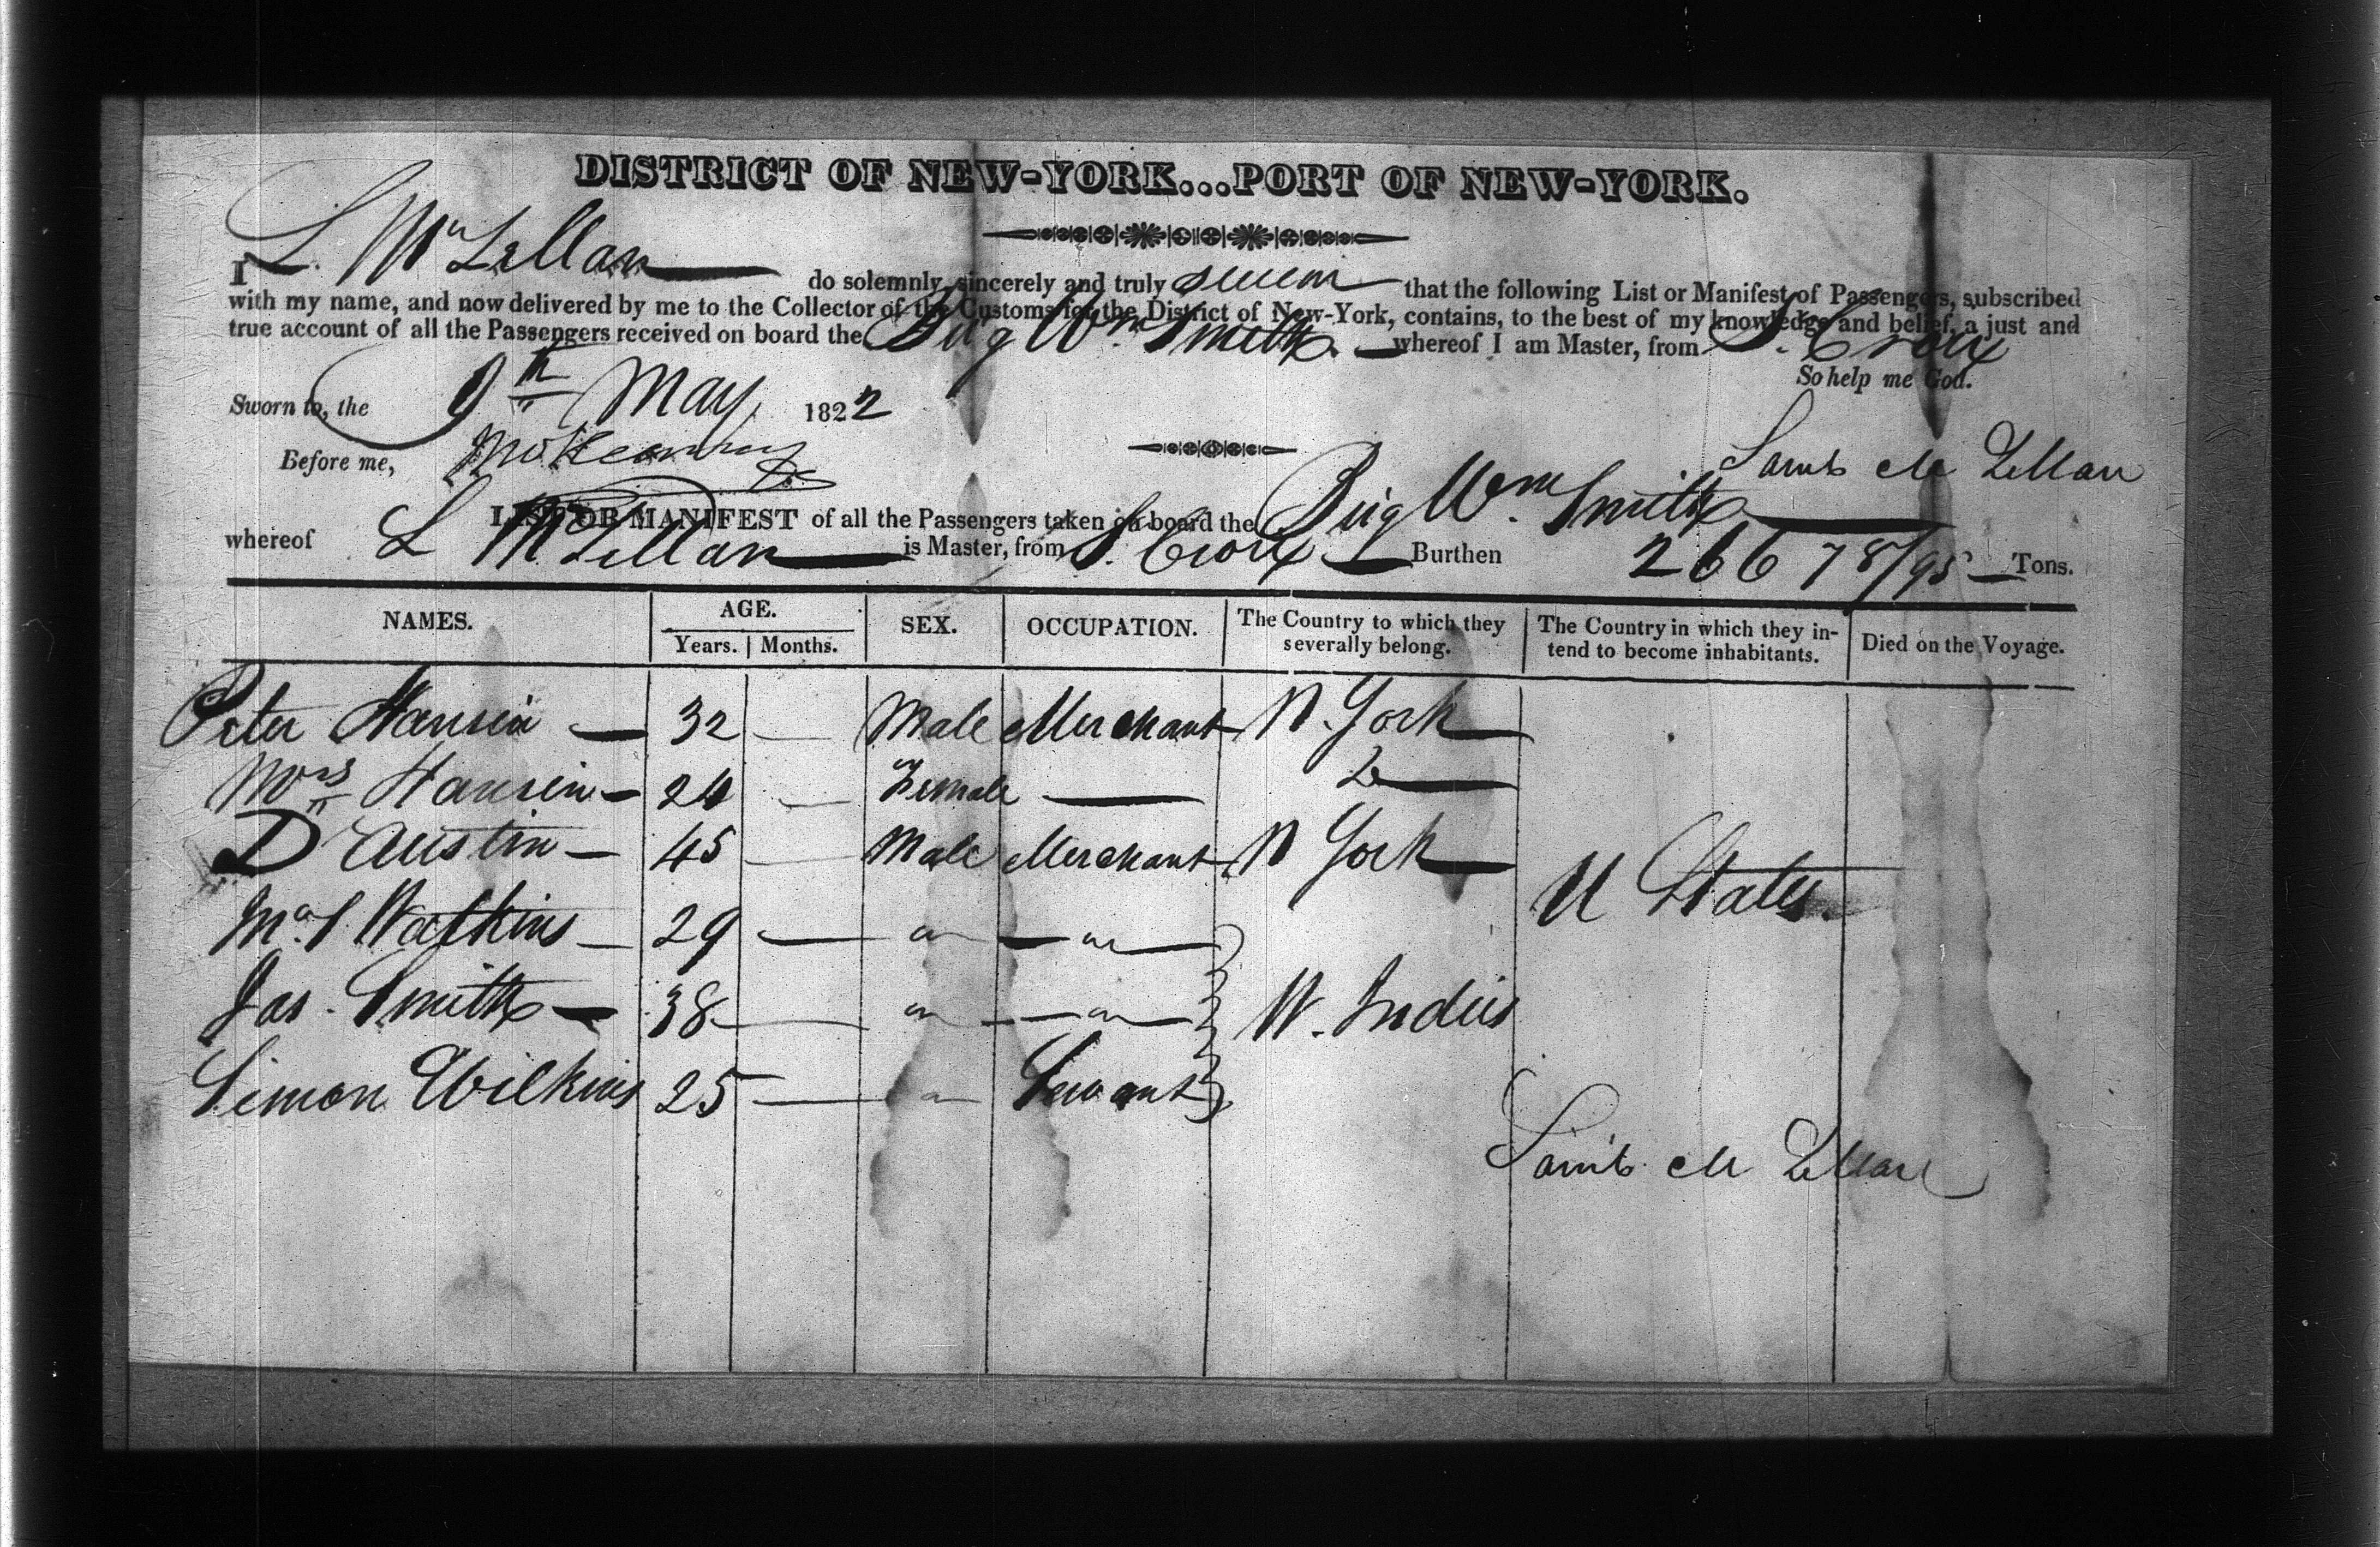 DISTRICT OF NEW-YORK...PORT OF NEW-YORK.
I L. McLellan do solemnly, sincerely and truly swear that the following List or Manifest of Passengers, subscribed
with my name, and now delivered by me to the Collector of the Customs for the District of New-York, contains, to the best of my knowledge and belief, a just and
true account of all the Passengers received on board the Brig Wm Smith. whereof I am Master, from S. Croix
So help me God.
Sworn to, the 9th May 1822
Before me,
Mc Lellan
LIST OR MANIFEST of all the Passengers taken on board the Brig Wm Smith
whereof L McLellan is Master, from S. Croix Burthen 266 78/95 Tons.
NAMES. AGE. SEX. OCCUPATION. The Country to which they severally belong. The Country in which they intend to become inhabitants. Died on the Voyage.
Years. Months.
Peter Hansen 32 Male Merchant N. York
Mrs Hansen 24 Female Do
D Austin 45 Male Merchant N York
Watkins 29 " "
U States
Jas. Smith 38 " " W. Indies
Simon Wilkins 25 " Servant
Mc Lellan